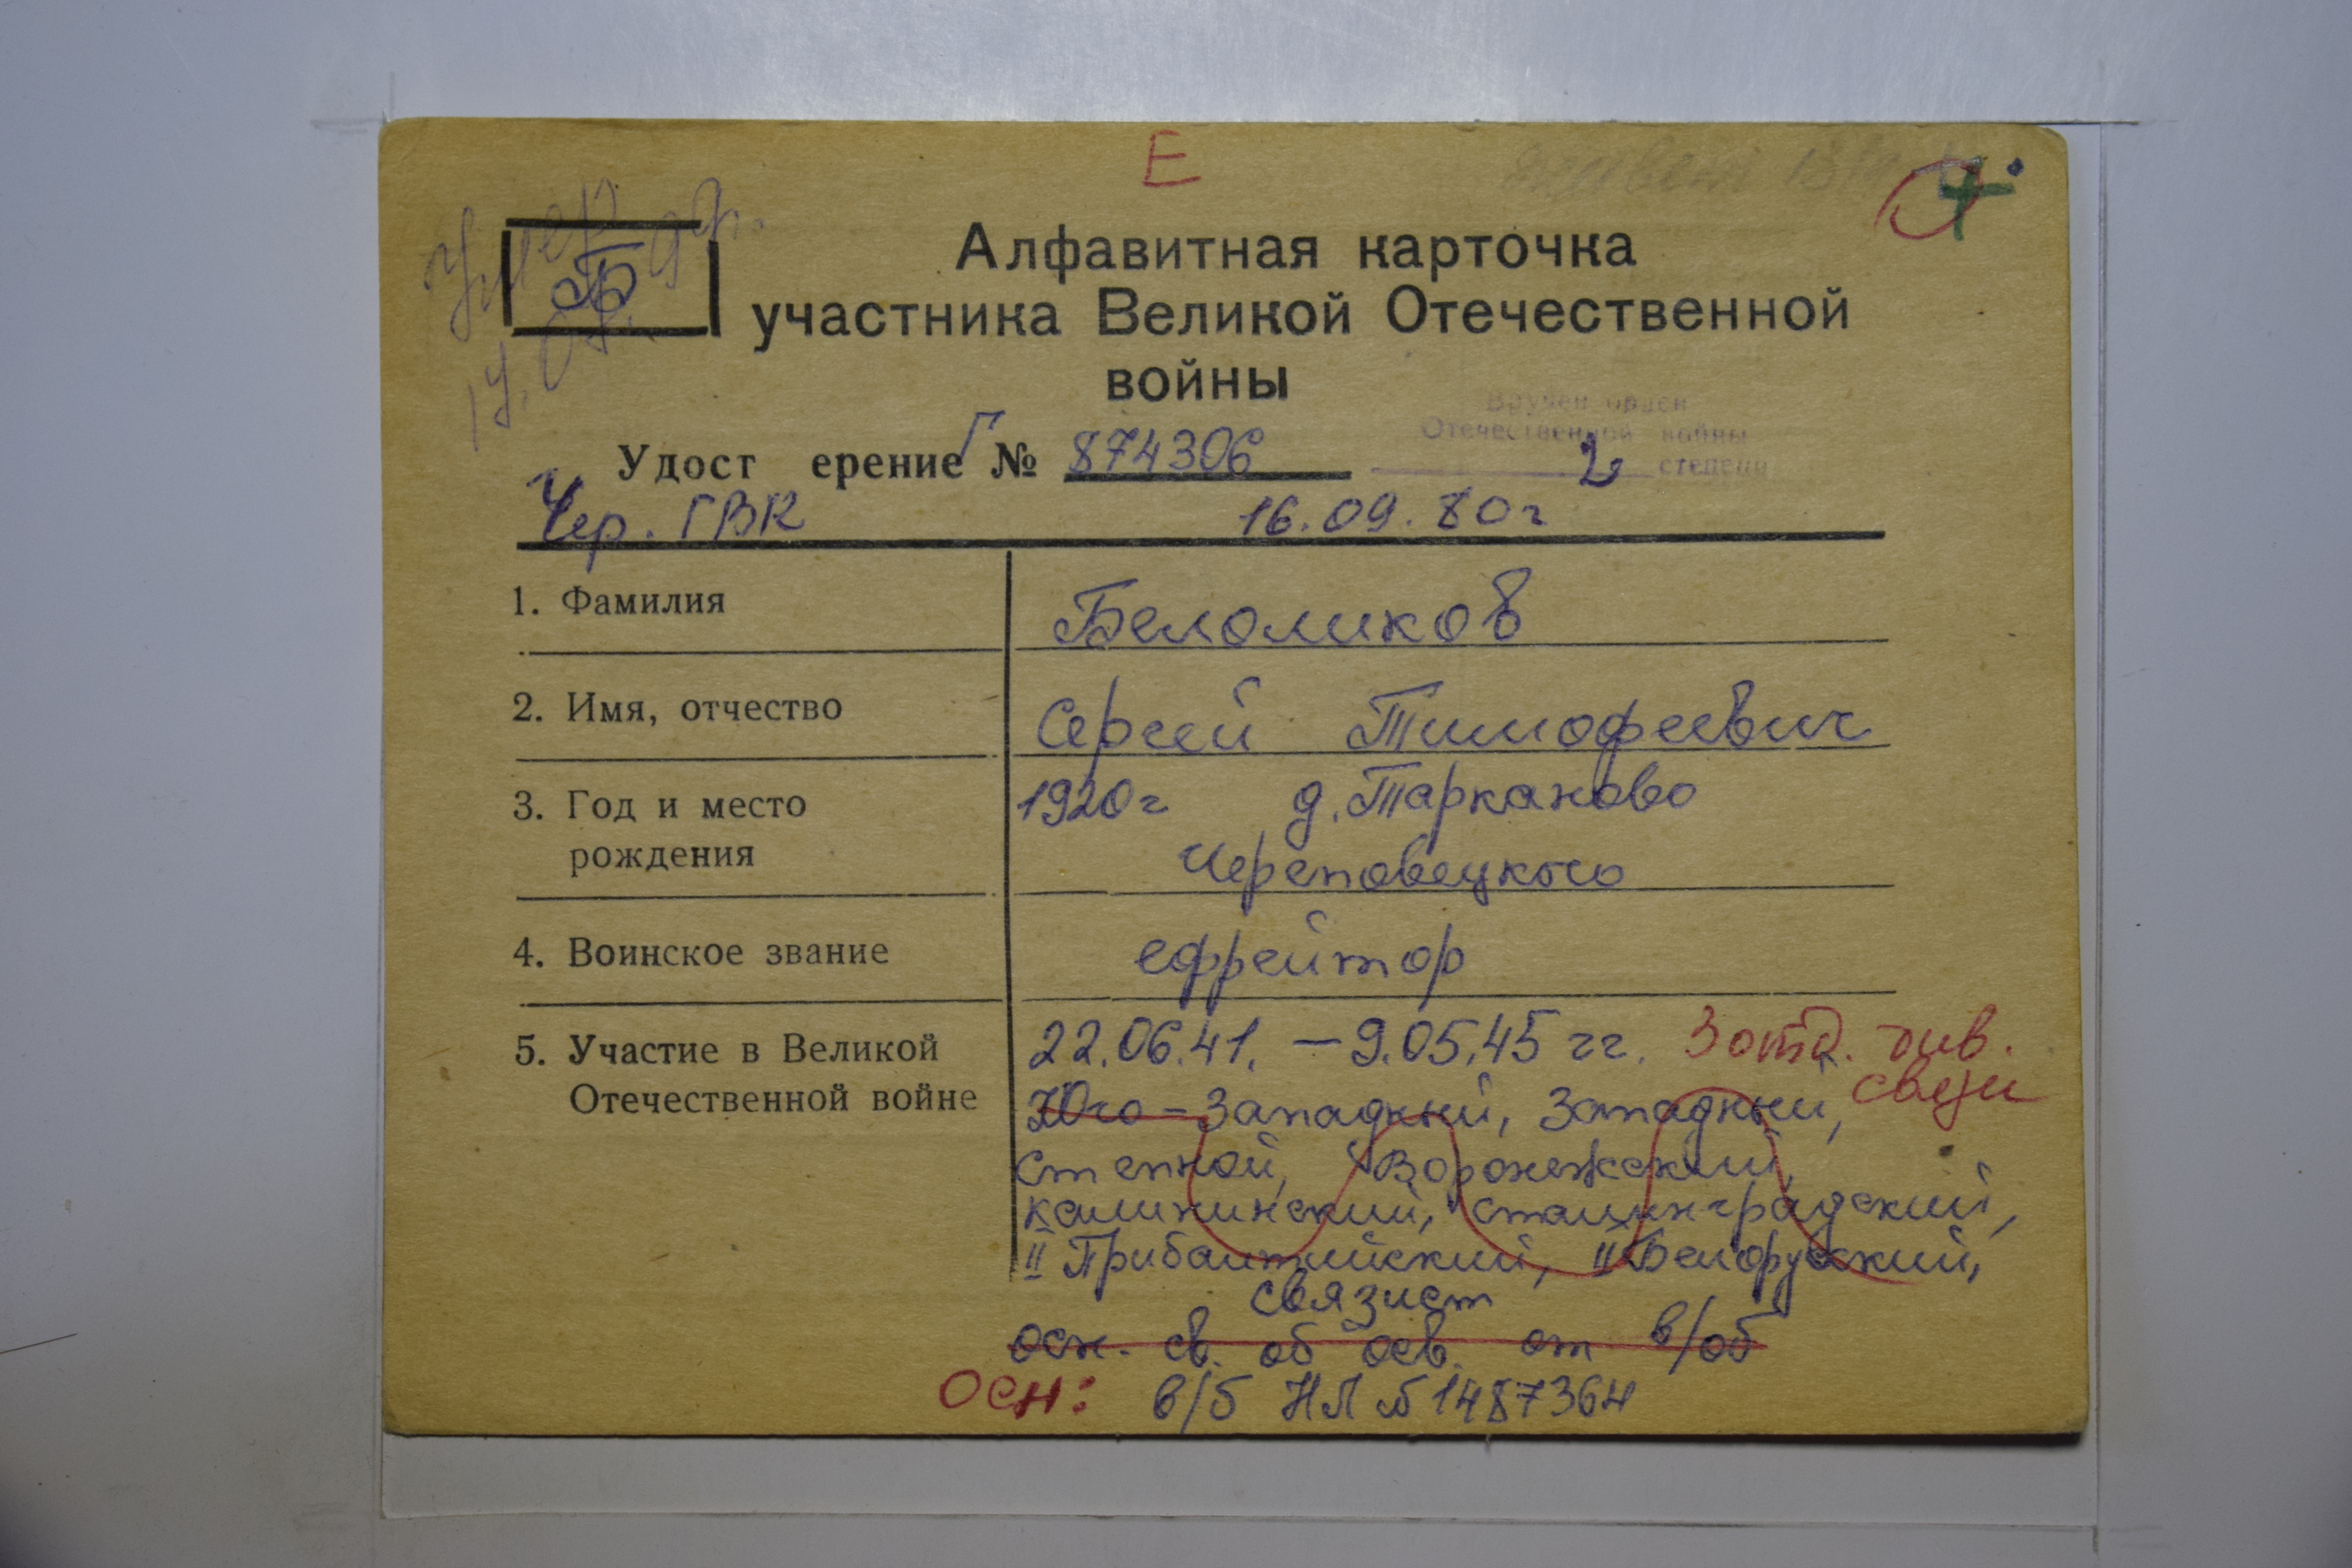 Е
Умер
Б
Алфавитная карточка
участника Великой Отечественной
войны
Вручен орден
Отечественной войны
2 степени
Удост ерение Г № 874306
Чер. ГВК 16.09.80г
1. Фамилия
Белоликов
2. Имя, отчество
Сергей Тимофеевич
3. Год и место
рождения
1920г д. Тарканово
Череповецкого
4. Воинское звание
ефрейтор
5. Участие в Великой
Отечественной войне
22.06.41. – 9.05.45 гг. 3 отд. див.
связи
Юго-Западный, Западный,
Степной, Воронежский,
Калининский, Сталинградский,
II Прибалтийский, II Белорусский,
связист
осн. св. об осв. от в/об
Осн: в/б НЛ № 1487364